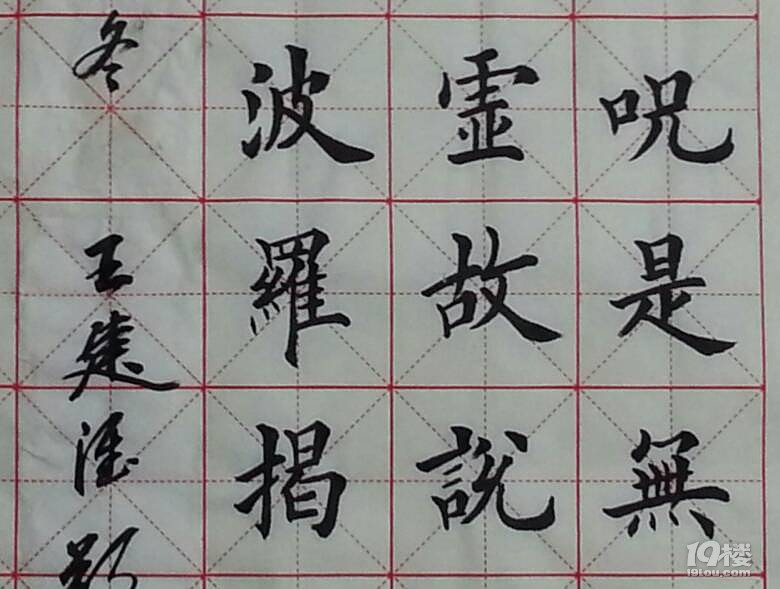 呪是無
霊故說
波羅揭
冬王建
19楼
19lou.com